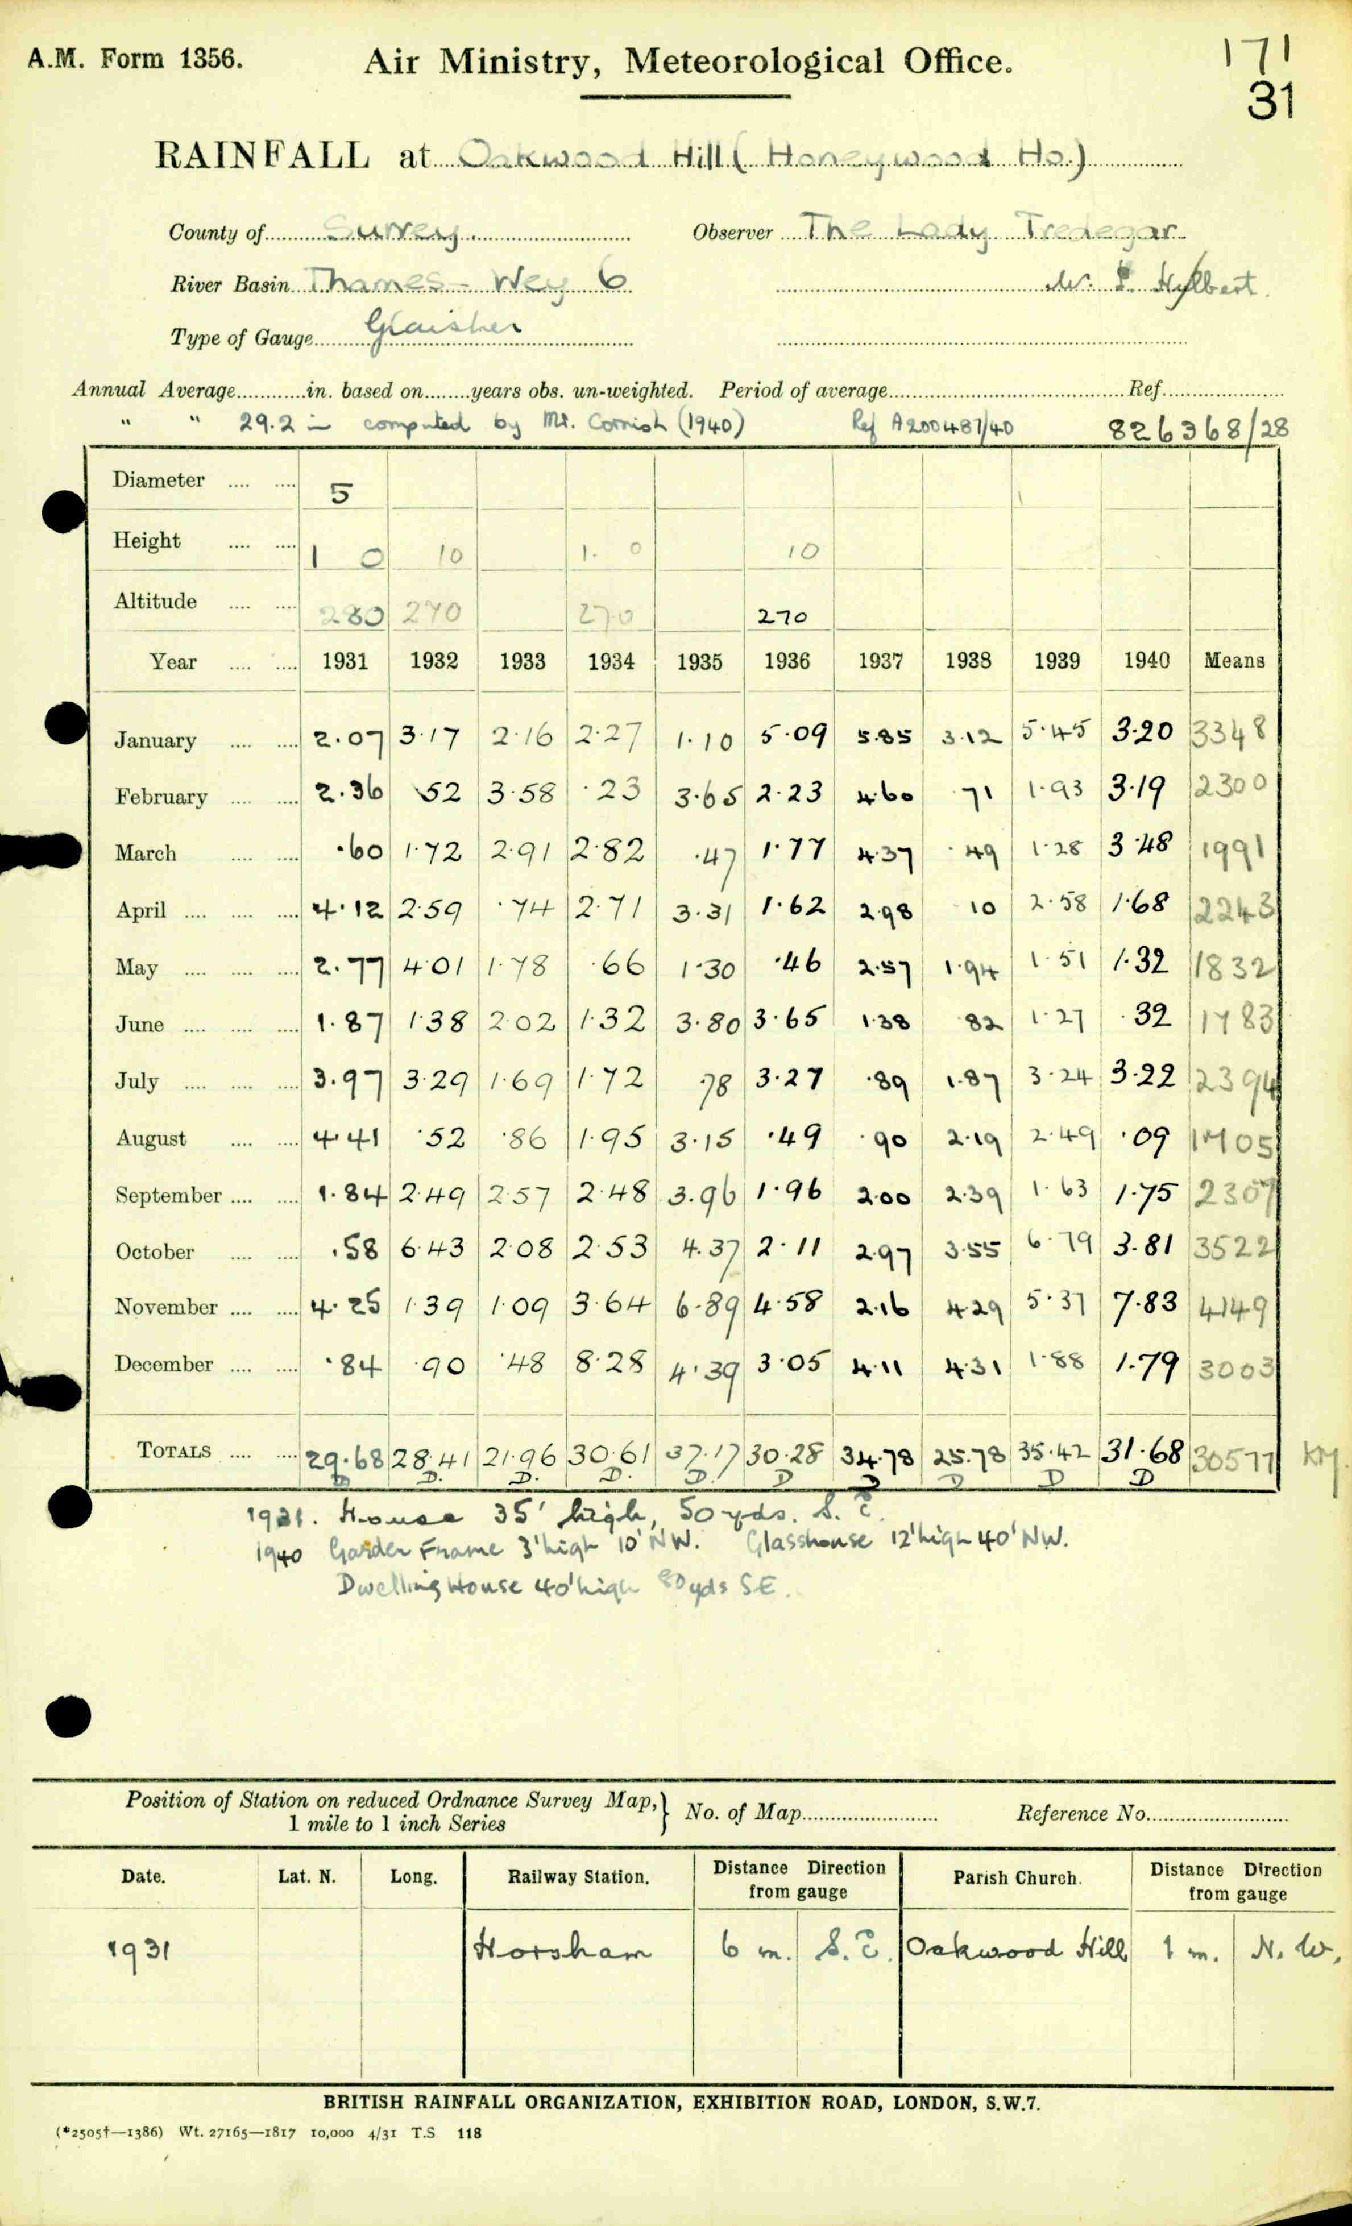 A.M. Form 1356. Air Ministry, Meteorological Office. 171
31
RAINFALL at Oakwood Hill (Honeywood Ho.)
County of Surrey. Observer The Lady Tredegar
River Basin Thames - Wey 6 Mr.
Type of Gauge Glaisher
Annual Average............in. based on........years obs. un-weighted. Period of average.............. Ref..............
" " 29.2 in computed by Mr. Cornish (1940) Ref A200487/40 826368/28
Diameter .... .... 5
Height .... .... 1 0 10 1. 0 10
Altitude .... .... 280 270 270 270
Year .... .... 1931 1932 1933 1934 1935 1936 1937 1938 1939 1940 Means
January .... .... 2.07 3.17 2.16 2.27 1.10 5.09 5.85 3.12 5.45 3.20 3348
February .... .... 2.36 .52 3.58 .23 3.65 2.23 4.60 .71 1.93 3.19 2300
March .... .... .60 1.72 2.91 2.82 .47 1.77 4.37 .49 1.28 3.48 1991
April .... .... .... 4.12 2.59 .74 2.71 3.31 1.62 2.98 10 2.58 1.68 2243
May .... .... .... 2.77 4.01 1.78 .66 1.30 .46 2.57 1.94 1.51 1.32 1832
June .... .... .... 1.87 1.38 2.02 1.32 3.80 3.65 1.38 82 1.27 .32 1783
July .... .... .... 3.97 3.29 1.69 1.72 .78 3.27 .89 1.87 3.24 3.22 2394
August .... .... 4.41 .52 .86 1.95 3.15 .49 .90 2.19 2.49 .09 1705
September .... .... 1.84 2.49 2.57 2.48 3.96 1.96 2.00 2.39 1.63 1.75 2307
October .... .... .58 6.43 2.08 2.53 4.37 2.11 2.97 3.55 6.79 3.81 3522
November .... .... 4.25 1.39 1.09 3.64 6.89 4.58 2.16 4.29 5.37 7.83 4149
December .... .... .84 .90 .48 8.28 4.39 3.05 4.11 4.31 1.88 1.79 3003
TOTALS .... .... 29.68 28.41 21.96 30.61 37.17 30.28 34.78 25.78 35.42 31.68 30577
D D. D. D. D. D D D D D
1931. House 35' high, 50 yds. S.E.
1940 Garden Frame 3' high 10' NW. Glasshouse 12' high 40' NW.
Dwelling House 40' high 80 yds SE.
Position of Station on reduced Ordnance Survey Map, } No. of Map.............. Reference No..............
1 mile to 1 inch Series
Date. Lat. N. Long. Railway Station. Distance Direction from gauge Parish Church. Distance Direction from gauge
1931 Horsham 6 m. S.E. Oakwood Hill 1 m. N.W.
BRITISH RAINFALL ORGANIZATION, EXHIBITION ROAD, LONDON, S.W.7.
(*2505†—1386) Wt. 27165—1817 10,000 4/31 T.S 118